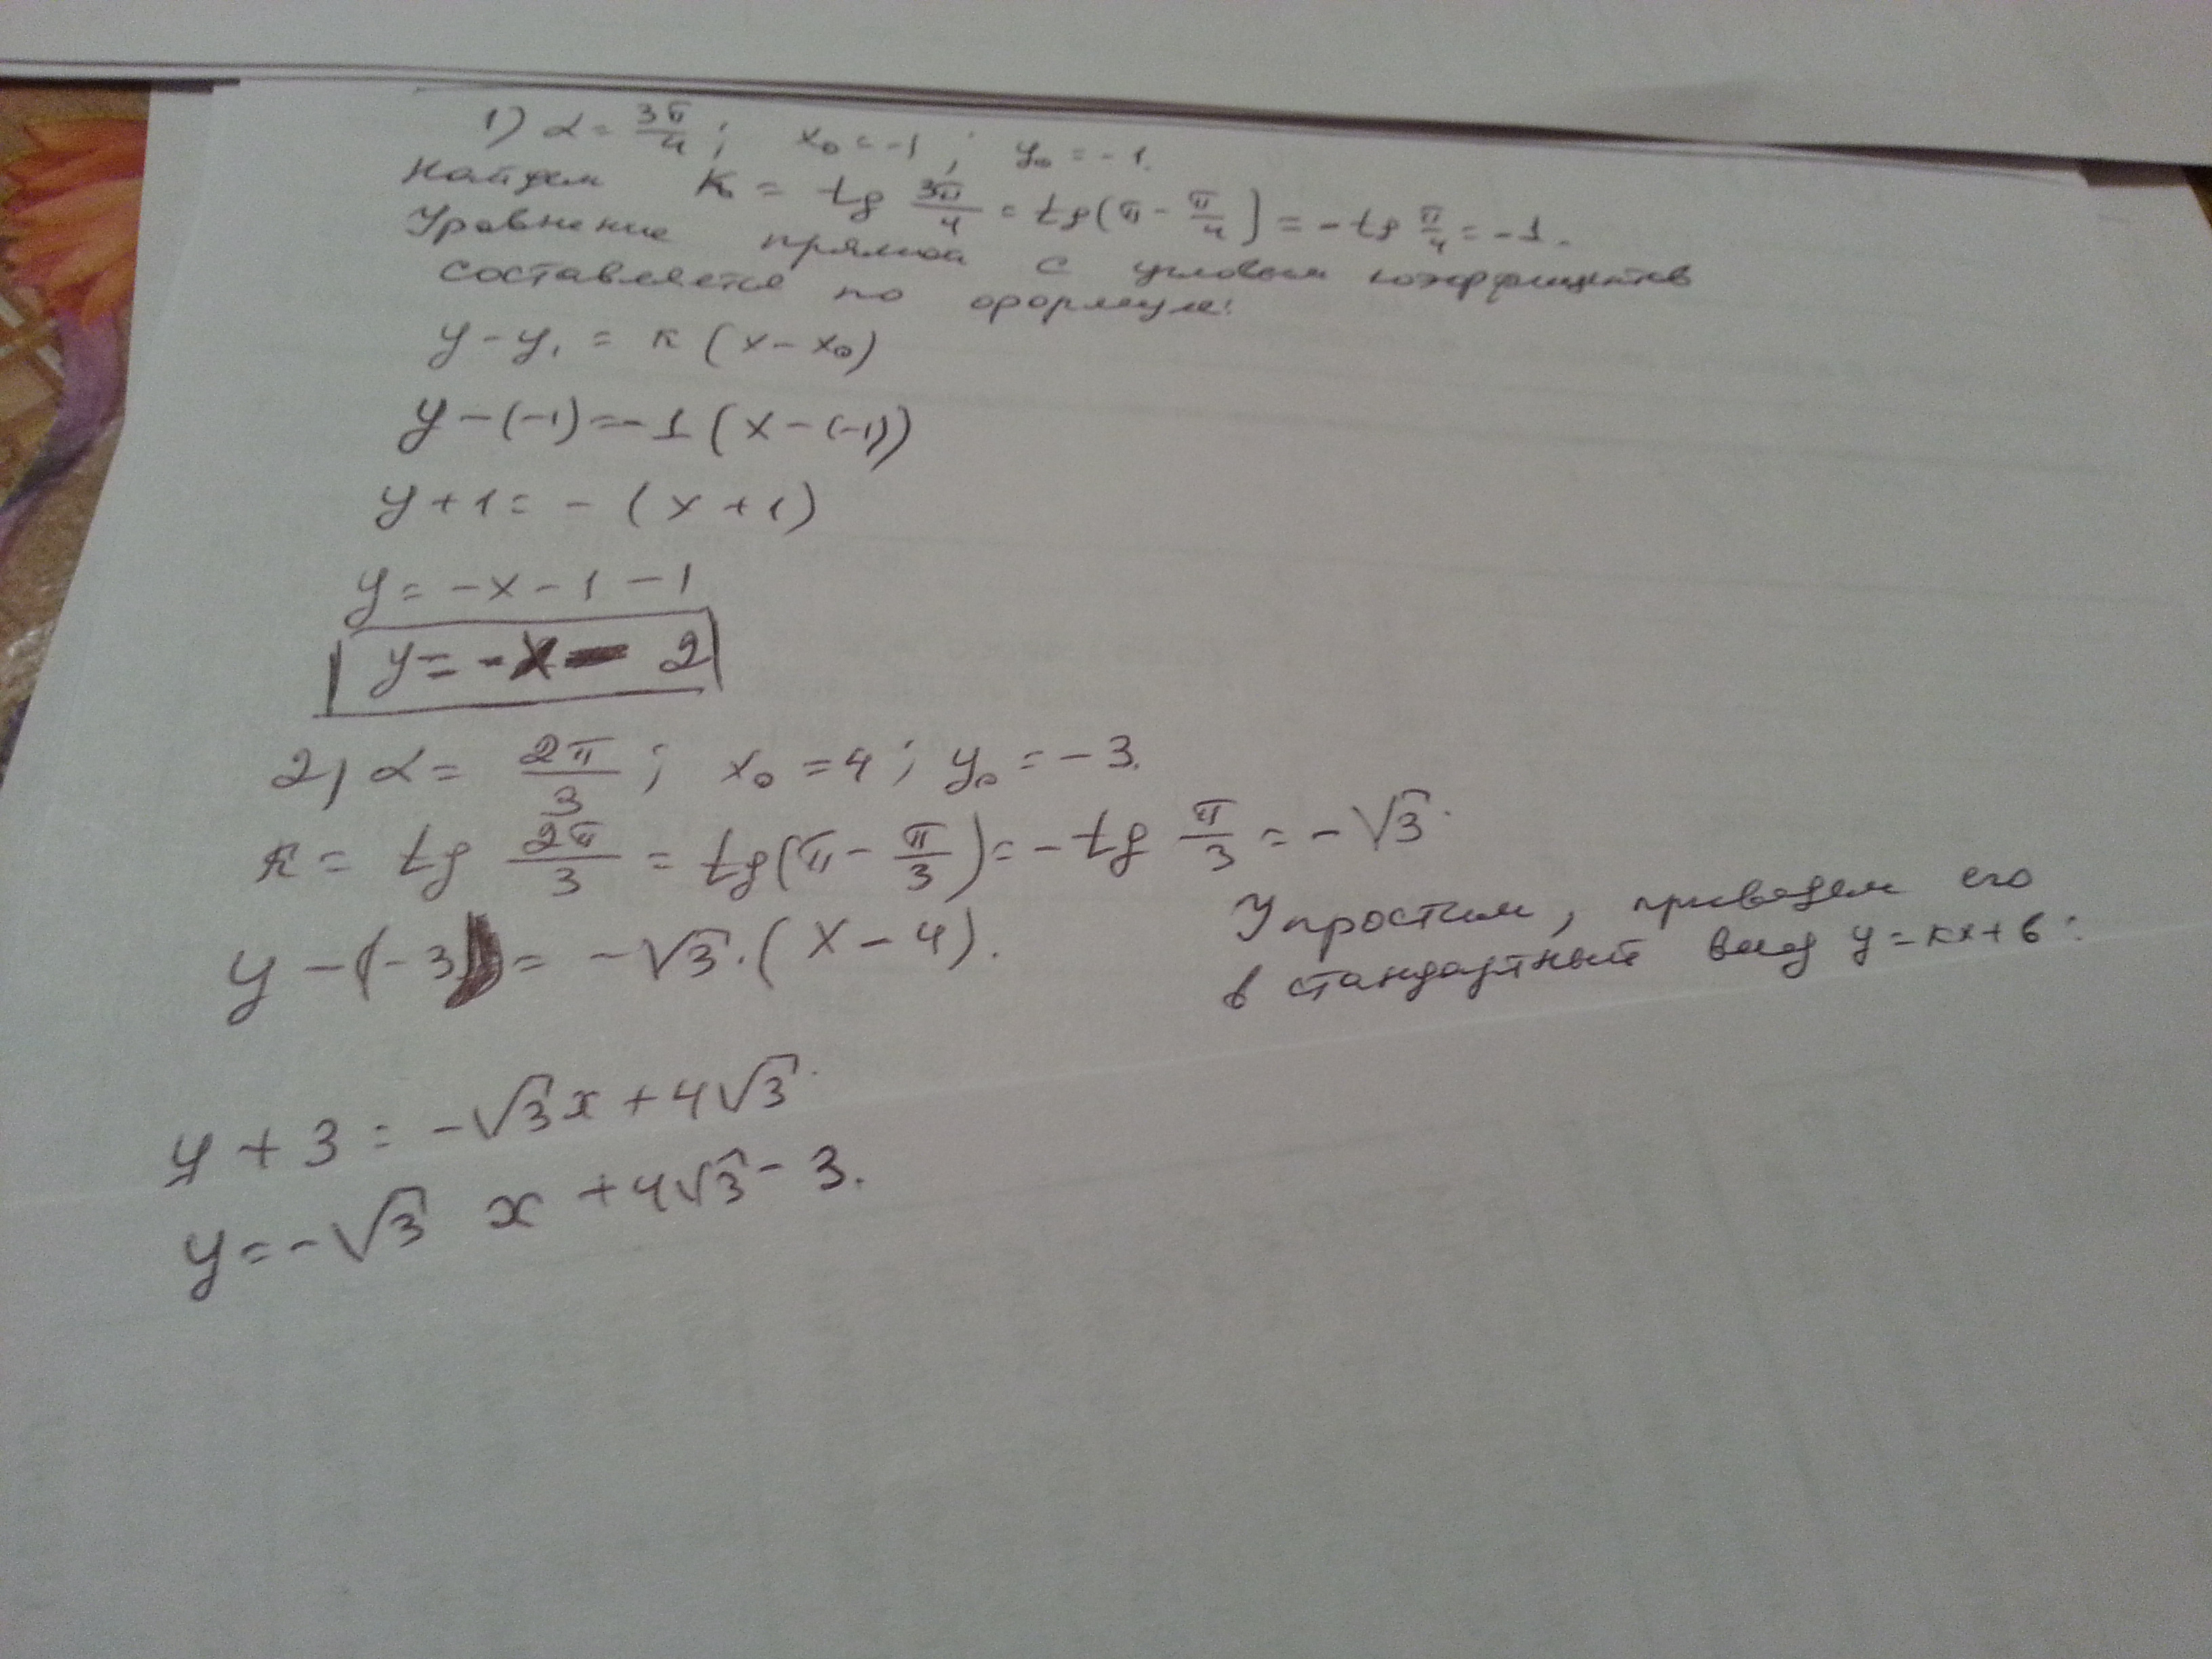 1) α = 3π/4 ; x₀ = -1 ; y₀ = -1.
Найдем k = tg 3π/4 = tg(π - π/4) = -tg π/4 = -1.
Уравнение прямой с угловым коэффициентов
составляется по формуле:
y - y₁ = k (x - x₀)
y - (-1) = -1 (x - (-1))
y + 1 = - (x + 1)
y = -x - 1 - 1
y = -x - 2
2) α = 2π/3 ; x₀ = 4 ; y₀ = -3.
k = tg 2π/3 = tg(π - π/3) = -tg π/3 = -√3.
y - (-3) = -√3·(x - 4).
Упростим, приведем его
в стандартный вид y = kx + b:
y + 3 = -√3x + 4√3.
y = -√3 x + 4√3 - 3.